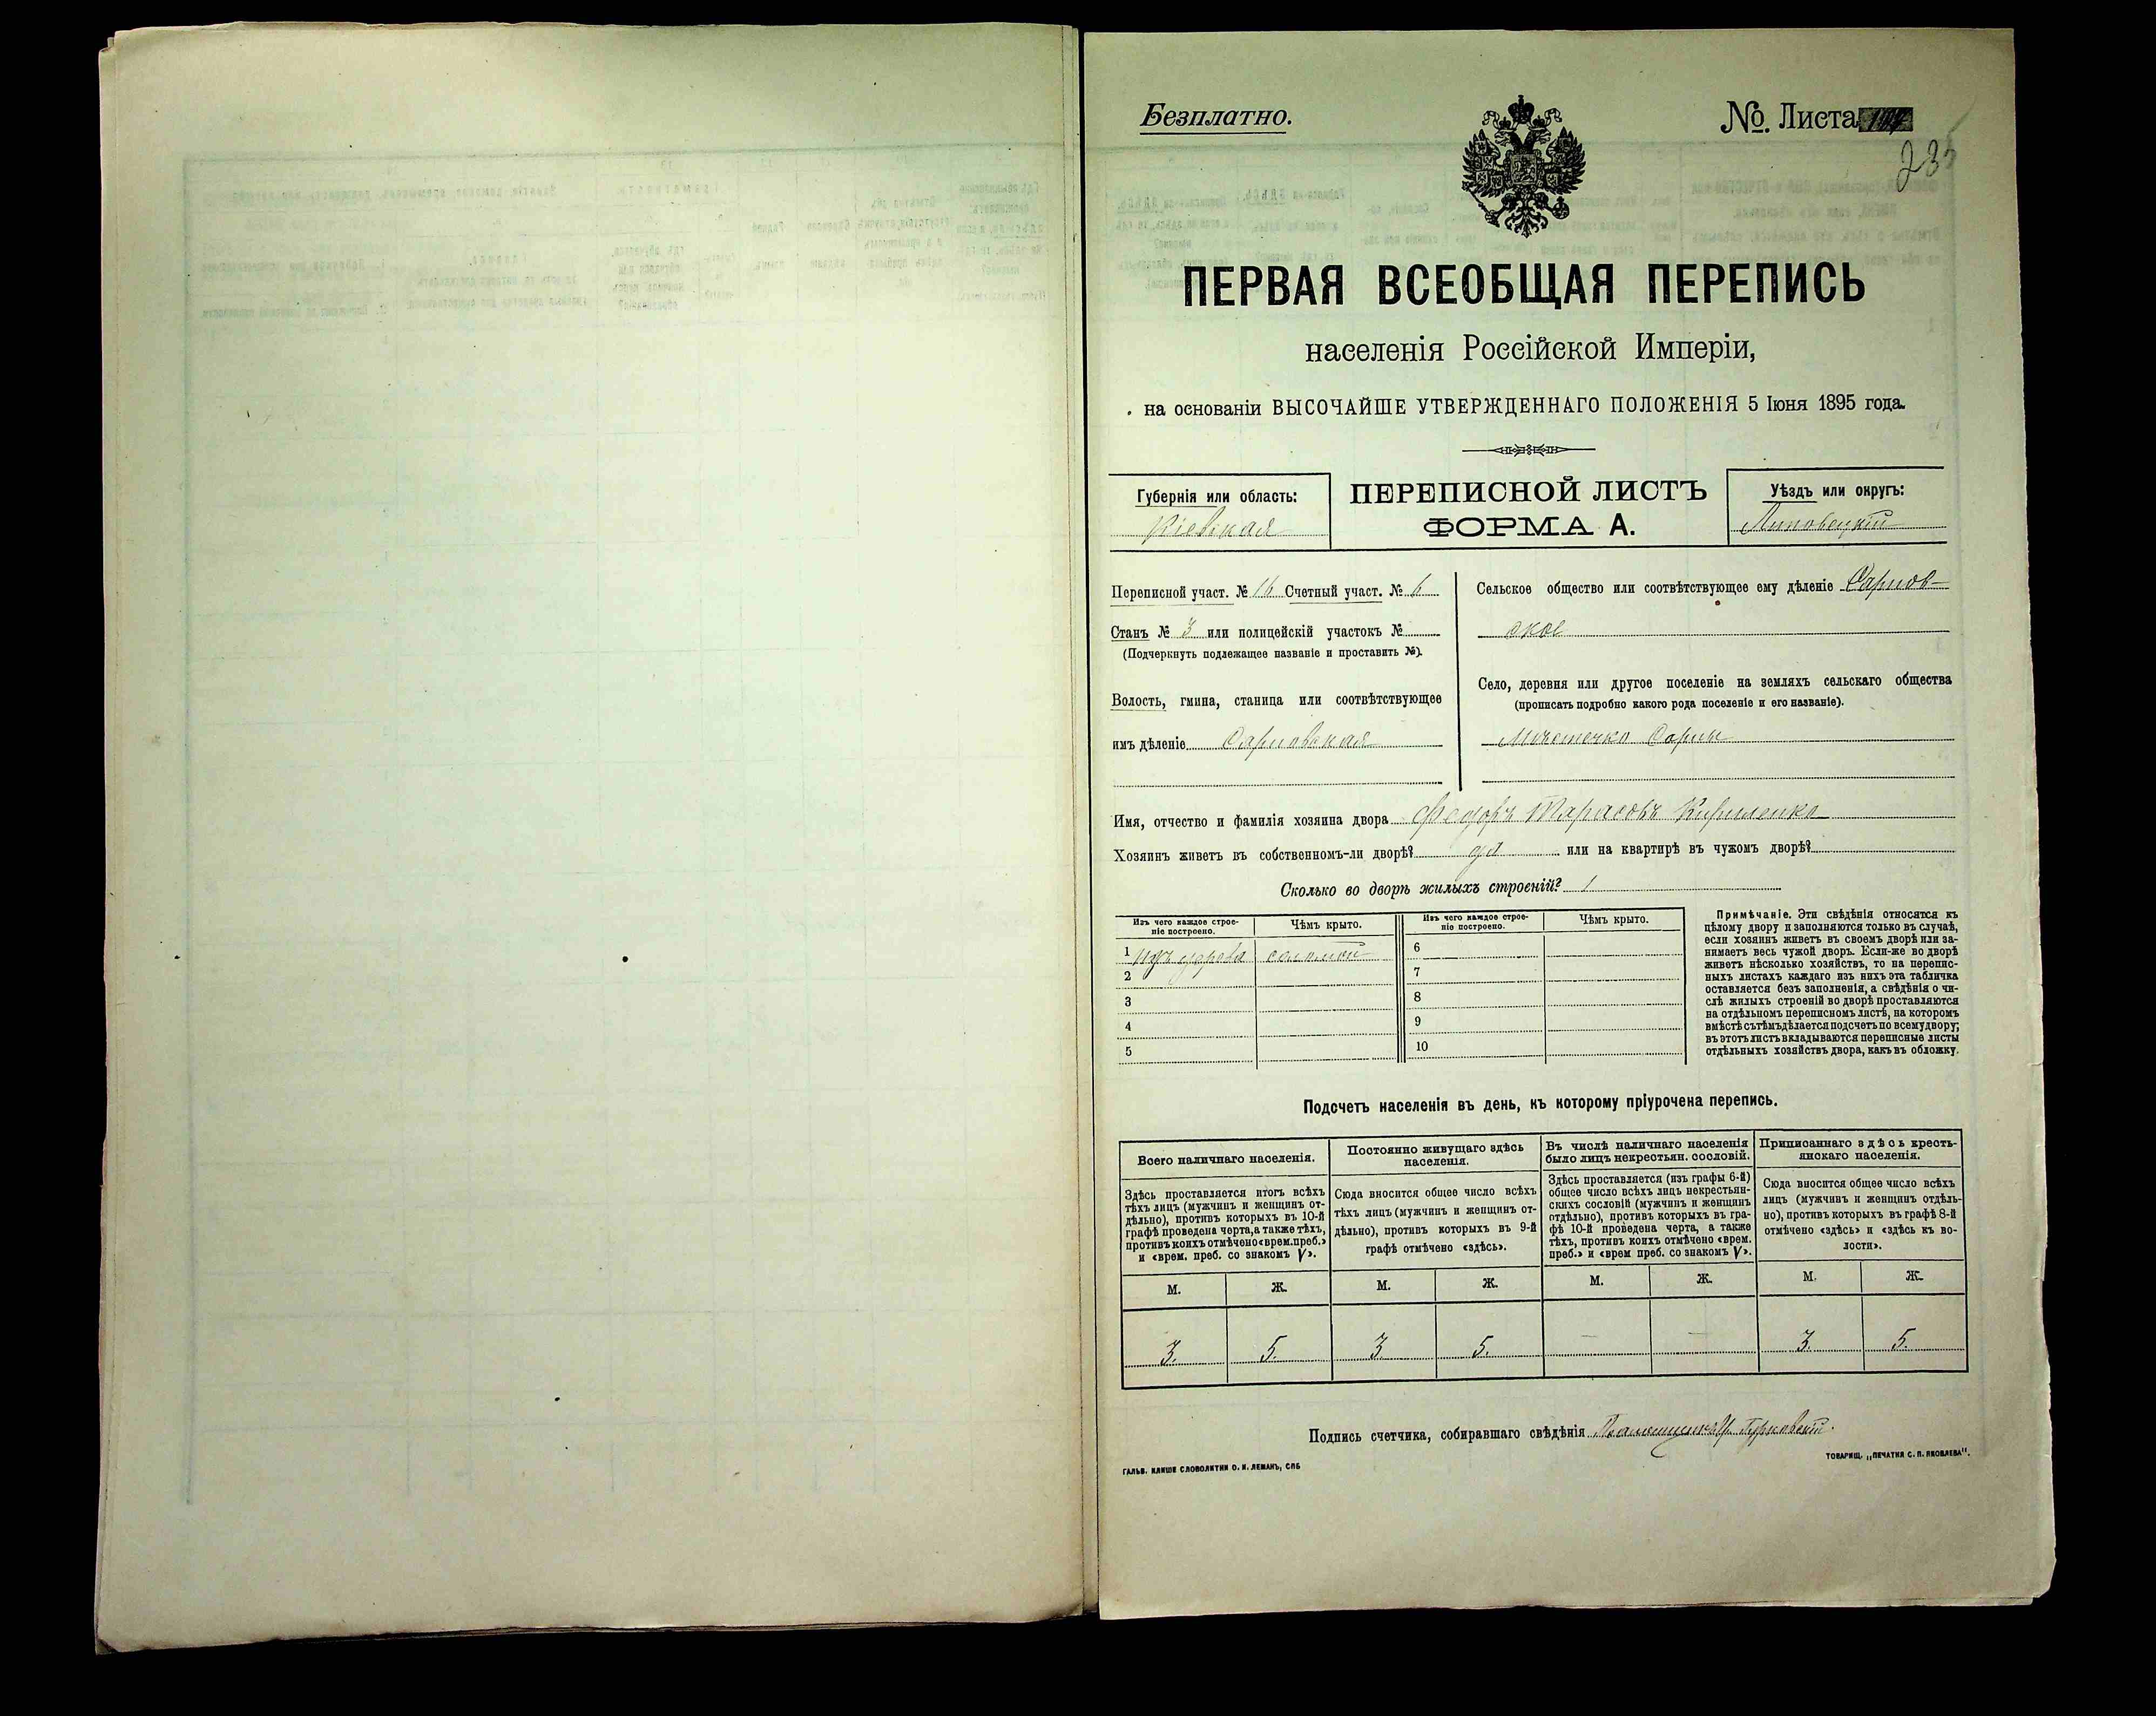 Безплатно.
№. Листа
ПЕРВАЯ ВСЕОБЩАЯ ПЕРЕПИСЬ
населенія Россійской Имперіи,
на основаніи ВЫСОЧАЙШЕ УТВЕРЖДЕННАГО ПОЛОЖЕНІЯ 5 Іюня 1895 года.
Губернія или область:
Кіевская
ПЕРЕПИСНОЙ ЛИСТЪ
ФОРМА А.
Уѣздъ или округъ:
Липовецкій
Переписной участ. № 16 Счетный участ. № 6
Станъ № 3 или полицейскій участокъ №
(Подчеркнуть подлежащее названіе и проставить №).
Волость, гмина, станица или соотвѣтствующее
имъ дѣленіе Сарновская
Сельское общество или соотвѣтствующее ему дѣленіе Сарнов-
ское
Село, деревня или другое поселеніе на земляхъ сельскаго общества
(прописать подробно какого рода поселеніе и его названіе).
Мѣстечко Сарны
Имя, отчество и фамилія хозяина двора Федоръ Тарасовъ Кириленко
Хозяинъ живетъ въ собственномъ-ли дворѣ? да или на квартирѣ въ чужомъ дворѣ?
Сколько во дворѣ жилыхъ строеній? 1
Изъ чего каждое строе-
ніе построено.
Чѣмъ крыто.
Изъ чего каждое строе-
ніе построено.
Чѣмъ крыто.
1 изъ дерева соломой
2
3
4
5
6
7
8
9
10
Примѣчаніе. Эти свѣдѣнія относятся къ
цѣлому двору и заполняются только въ случаѣ,
если хозяинъ живетъ въ своемъ дворѣ или за-
нимаетъ весь чужой дворъ. Если-же во дворѣ
живетъ нѣсколько хозяйствъ, то на перепис-
ныхъ листахъ каждаго изъ нихъ эта табличка
оставляется безъ заполненія, а свѣдѣнія о чи-
слѣ жилыхъ строеній во дворѣ проставляются
на отдѣльномъ переписномъ листѣ, на которомъ
вмѣстѣ съ тѣмъ дѣлается подсчетъ по всему двору;
въ этотъ листъ вкладываются переписные листы
отдѣльныхъ хозяйствъ двора, какъ въ обложку.
Подсчетъ населенія въ день, къ которому пріурочена перепись.
Всего наличнаго населенія.
Здѣсь проставляется итогъ всѣхъ
тѣхъ лицъ (мужчинъ и женщинъ от-
дѣльно), противъ которыхъ въ 10-й
графѣ проведена черта, а также тѣхъ,
противъ коихъ отмѣчено «врем. преб.»
и «врем. преб. со знакомъ V».
Постоянно живущаго здѣсь
населенія.
Сюда вносится общее число всѣхъ
тѣхъ лицъ (мужчинъ и женщинъ от-
дѣльно), противъ которыхъ въ 9-й
графѣ отмѣчено «здѣсь».
Въ числѣ наличнаго населенія
было лицъ некрестьян. сословій.
Здѣсь проставляется (изъ графы 6-й)
общее число всѣхъ лицъ некрестьян-
скихъ сословій (мужчинъ и женщинъ
отдѣльно), противъ которыхъ въ гра-
фѣ 10-й проведена черта, а также
тѣхъ, противъ коихъ отмѣчено «врем.
преб.» и «врем преб. со знакомъ V».
Приписаннаго здѣсь кресть-
янскаго населенія.
Сюда вносится общее число всѣхъ
лицъ (мужчинъ и женщинъ отдѣль-
но), противъ которыхъ въ графѣ 8-й
отмѣчено «здѣсь» и «здѣсь къ во-
лости».
М. Ж. М. Ж. М. Ж. М. Ж.
3. 5. 3 5. — — 3. 5.
Подпись счетчика, собиравшаго свѣдѣнія
ГАЛЬВ. КЛИШЕ СЛОВОЛИТНИ О. И. ЛЕМАНЪ, СПБ
ТОВАРИЩ. „ПЕЧАТНЯ С. П. ЯКОВЛЕВА".